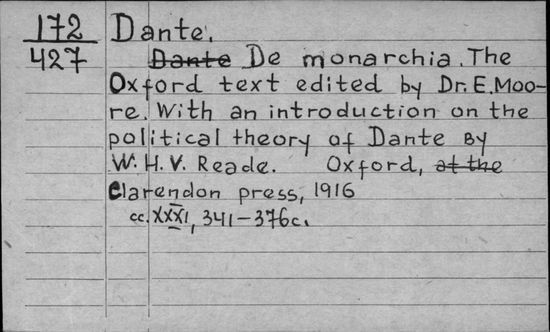 172 Dante.
427 Dante De monarchia. The
Oxford text edited by Dr. E. Moo-
re. With an introduction on the
political theory of Dante by
W. H. V. Reade. Oxford, at the
Clarendon press, 1916
cc. XXXI, 341-376c.